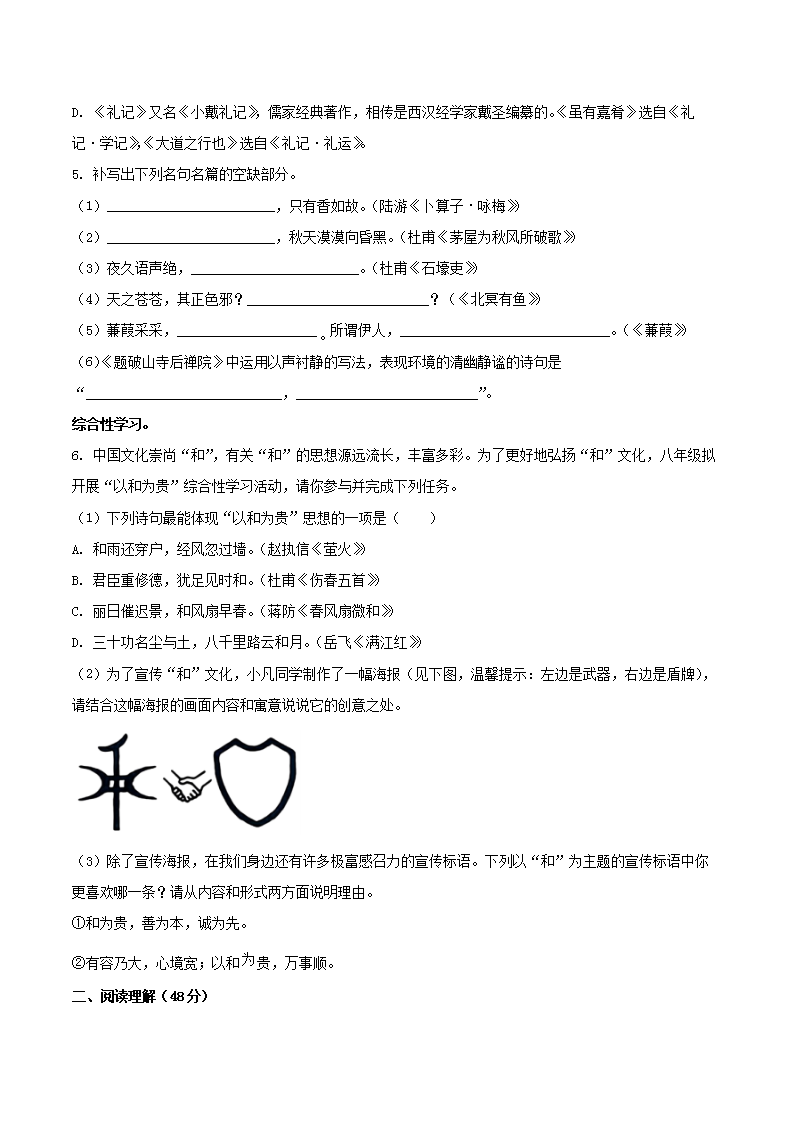 D. 《礼记》又名《小戴礼记》，儒家经典著作，相传是西汉经学家戴圣编纂的。《虽有嘉肴》选自《礼
记·学记》，《大道之行也》选自《礼记·礼运》。
5. 补写出下列名句名篇的空缺部分。
（1）________________________，只有香如故。（陆游《卜算子·咏梅》）
（2）________________________，秋天漠漠向昏黑。（杜甫《茅屋为秋风所破歌》）
（3）夜久语声绝，________________________。（杜甫《石壕吏》）
（4）天之苍苍，其正色邪？__________________________？（《北冥有鱼》）
（5）蒹葭采采，____________________。所谓伊人，______________________________。（《蒹葭》）
（6）《题破山寺后禅院》中运用以声衬静的写法，表现环境的清幽静谧的诗句是
“____________________________，__________________________”。
综合性学习。
6. 中国文化崇尚“和”，有关“和”的思想源远流长，丰富多彩。为了更好地弘扬“和”文化，八年级拟
开展“以和为贵”综合性学习活动，请你参与并完成下列任务。
（1）下列诗句最能体现“以和为贵”思想的一项是（　　）
A. 和雨还穿户，经风忽过墙。（赵执信《萤火》）
B. 君臣重修德，犹足见时和。（杜甫《伤春五首》）
C. 丽日催迟景，和风扇早春。（蒋防《春风扇微和》）
D. 三十功名尘与土，八千里路云和月。（岳飞《满江红》）
（2）为了宣传“和”文化，小凡同学制作了一幅海报（见下图，温馨提示：左边是武器，右边是盾牌），
请结合这幅海报的画面内容和寓意说说它的创意之处。
（3）除了宣传海报，在我们身边还有许多极富感召力的宣传标语。下列以“和”为主题的宣传标语中你
更喜欢哪一条？请从内容和形式两方面说明理由。
①和为贵，善为本，诚为先。
②有容乃大，心境宽；以和为贵，万事顺。
二、阅读理解（48分）